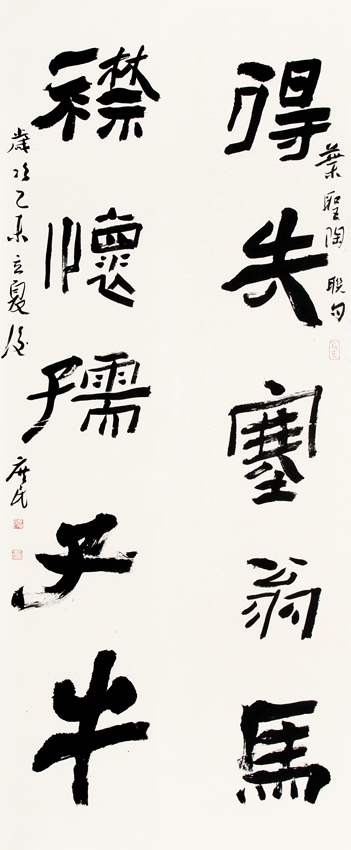 葉聖陶聯句
得失塞翁馬
襟懷孺子牛
歲次乙未立夏後